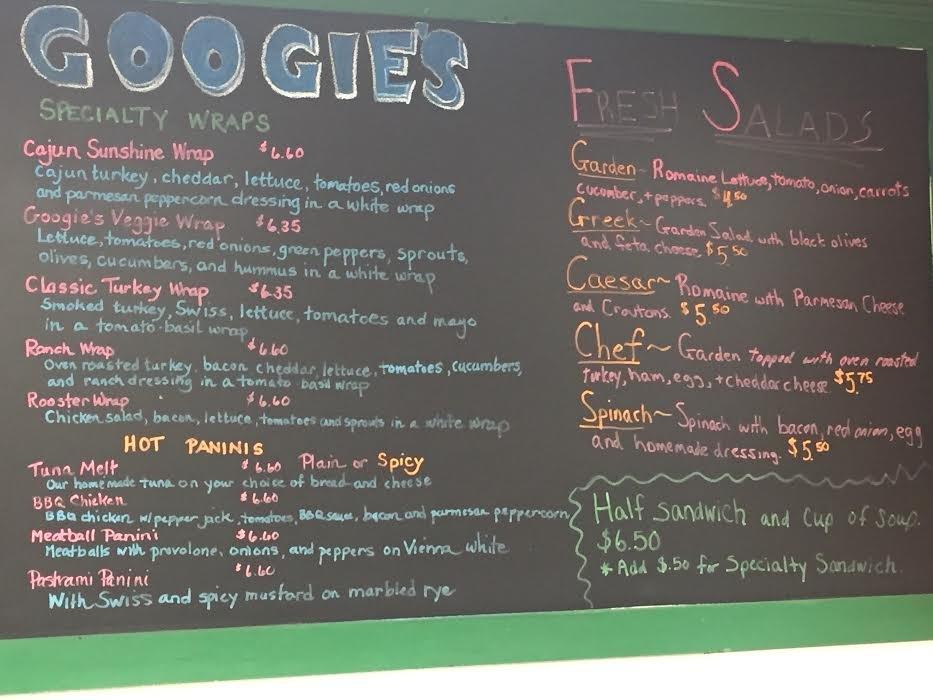 GOOGIE'S
SPECIALTY WRAPS
Cajun Sunshine Wrap $6.60
Cajun turkey, cheddar, lettuce, tomatoes, red onions
and parmesan peppercorn dressing in a white wrap
Googie's Veggie Wrap $6.35
Lettuce, tomatoes, red onions, green peppers, sprouts,
olives, cucumbers, and hummus in a white wrap
Classic Turkey Wrap $6.35
Smoked turkey, Swiss, lettuce, tomatoes and mayo
in a tomato-basil wrap
Ranch Wrap $6.60
Oven roasted turkey, bacon cheddar, lettuce, tomatoes, cucumbers,
and ranch dressing in a tomato basil wrap
Rooster Wrap $6.60
Chicken salad, bacon, lettuce, tomatoes and sprouts in a white wrap
HOT PANINIS
Tuna Melt $6.60 Plain or Spicy
Our homemade tuna on your choice of bread and cheese
BBQ Chicken $6.60
BBQ chicken w/pepper jack, tomatoes, BBQ sauce, bacon and parmesan peppercorn
Meatball Panini $6.60
Meatballs with provolone, onions, and peppers on Vienna white
Pastrami Panini $6.60
With Swiss and spicy mustard on marbled rye
FRESH SALADS
Garden~ Romaine Lettuce, tomato, onion, carrots
cucumber, + peppers. $4.50
Greek~ Garden Salad with black olives
and feta cheese. $5.50
Caesar~ Romaine with Parmesan Cheese
and Croutons. $5.50
Chef~ Garden topped with oven roasted
turkey, ham, egg, + cheddar cheese. $5.75
Spinach~ Spinach with bacon, red onion, egg
and homemade dressing. $5.50
Half sandwich and cup of soup.
$6.50
* Add $.50 for Specialty Sandwich.